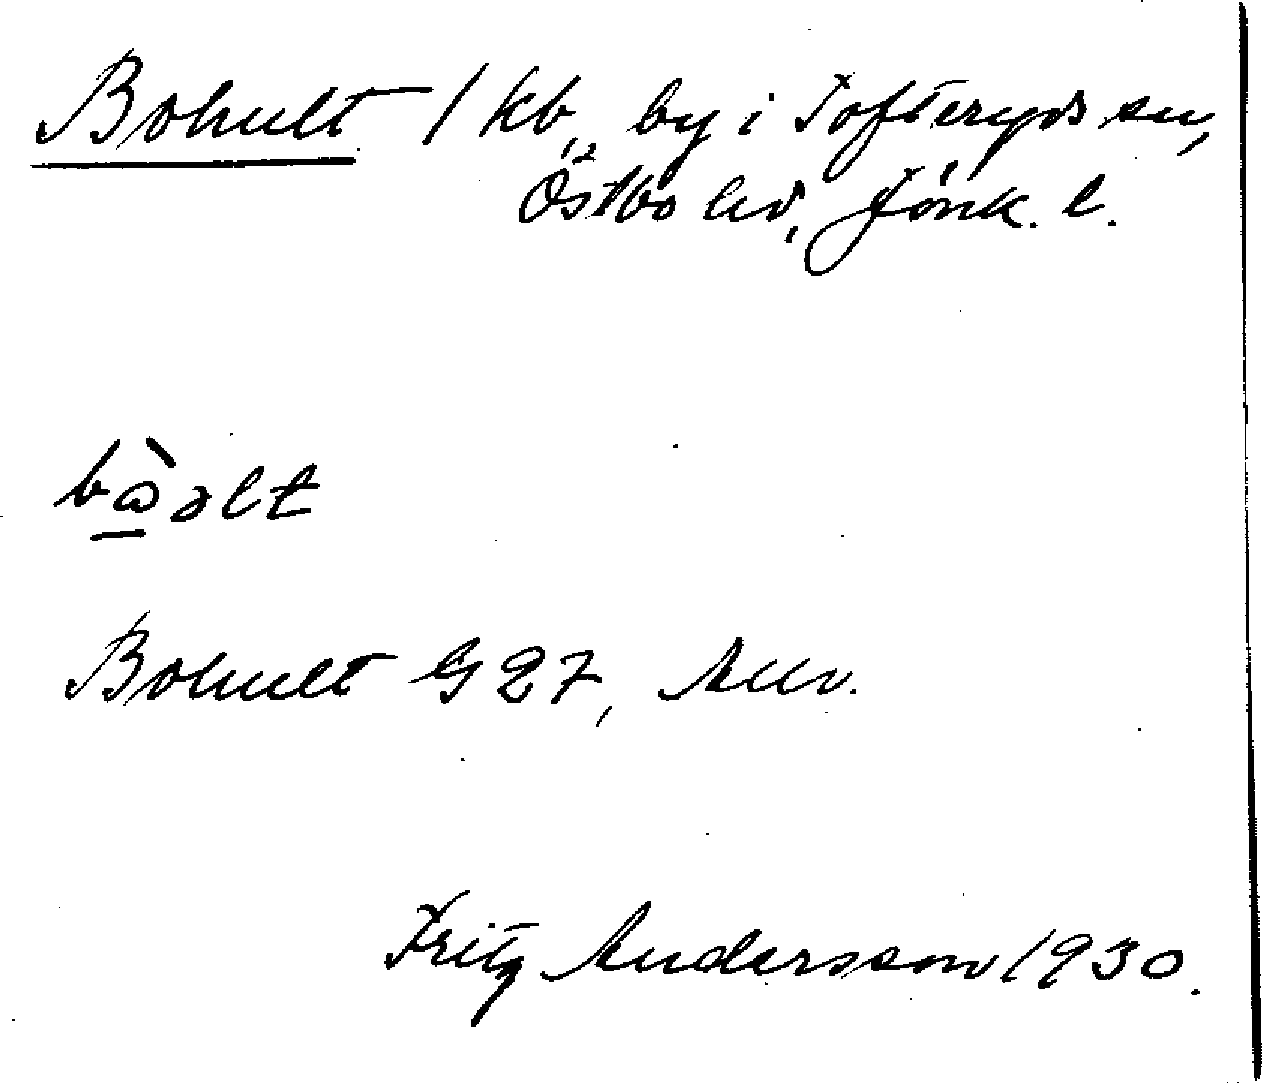 Bohult 1 kb, by i Tofteryds sn,
Östbo hd, Jönk. l.
bὼ̲əlt
Bohult G 27,
Fritz Andersson 1930.